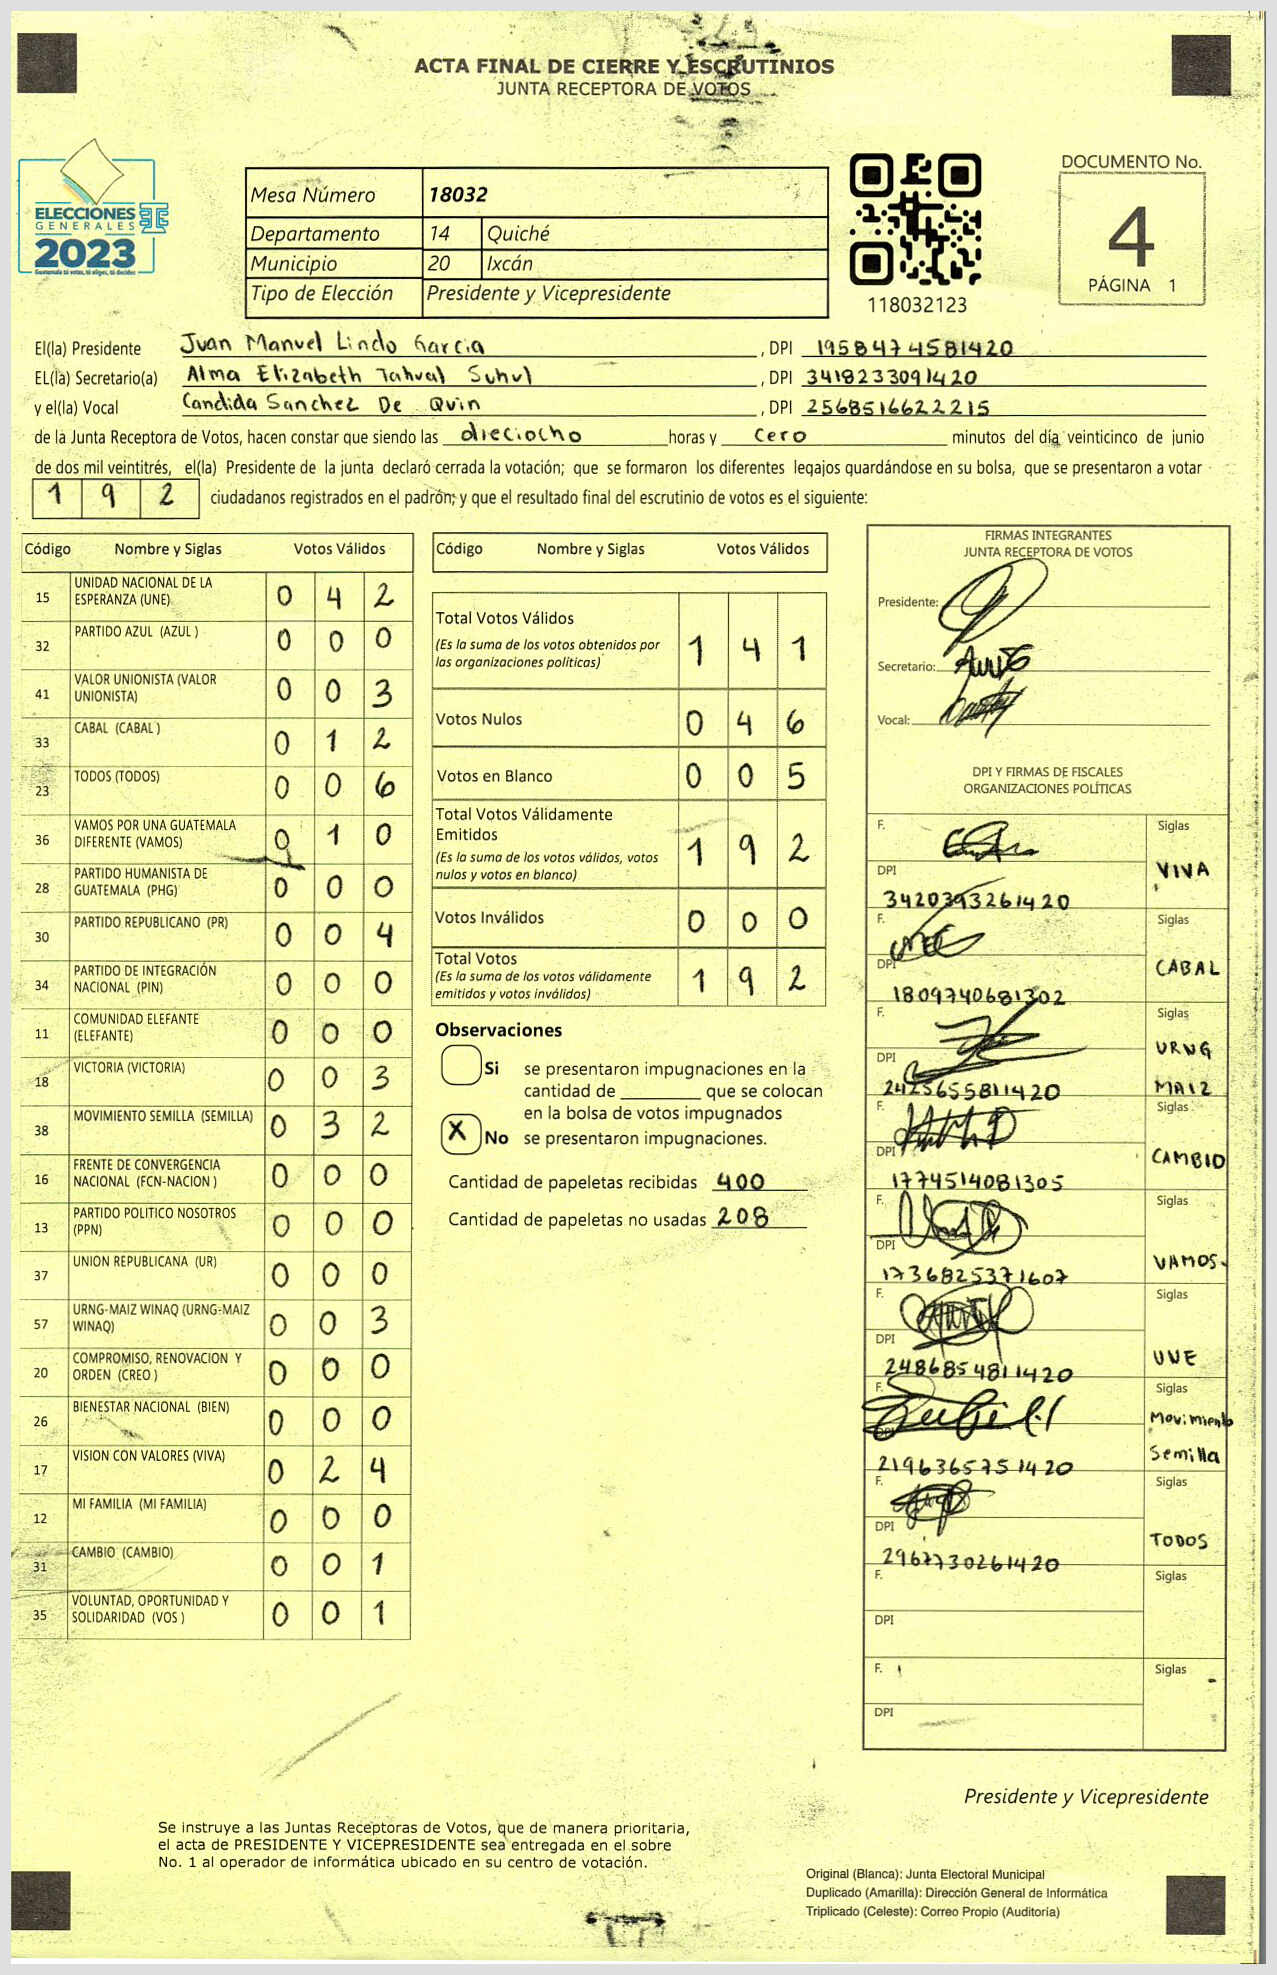 ACTA FINAL DE CIERRE Y ESCRUTINIOS
JUNTA RECEPTORA DE VOTOS
ELECCIONES
GENERALES
2023
Guatemala tú votas, tú eliges, tú decides
Mesa Número 18032
Departamento 14 Quiché
Municipio 20 Ixcán
Tipo de Elección Presidente y Vicepresidente
118032123
DOCUMENTO No.
4
PÁGINA 1
El(la) Presidente Juan Manuel Lindo Garcia , DPI 1958474581420
EL(la) Secretario(a) Alma Elizabeth Tahual Suhul , DPI 3418233091420
y el(la) Vocal Candida Sanchez De Quin , DPI 2568516622215
de la Junta Receptora de Votos, hacen constar que siendo las dieciocho horas y cero minutos del día veinticinco de junio
de dos mil veintitrés, el(la) Presidente de la junta declaró cerrada la votación; que se formaron los diferentes legajos guardándose en su bolsa, que se presentaron a votar
1 9 2 ciudadanos registrados en el padrón; y que el resultado final del escrutinio de votos es el siguiente:
Código Nombre y Siglas Votos Válidos
15 UNIDAD NACIONAL DE LA ESPERANZA (UNE) 0 4 2
32 PARTIDO AZUL (AZUL ) 0 0 0
41 VALOR UNIONISTA (VALOR UNIONISTA) 0 0 3
33 CABAL (CABAL ) 0 1 2
23 TODOS (TODOS) 0 0 6
36 VAMOS POR UNA GUATEMALA DIFERENTE (VAMOS) 0 1 0
28 PARTIDO HUMANISTA DE GUATEMALA (PHG) 0 0 0
30 PARTIDO REPUBLICANO (PR) 0 0 4
34 PARTIDO DE INTEGRACIÓN NACIONAL (PIN) 0 0 0
11 COMUNIDAD ELEFANTE (ELEFANTE) 0 0 0
18 VICTORIA (VICTORIA) 0 0 3
38 MOVIMIENTO SEMILLA (SEMILLA) 0 3 2
16 FRENTE DE CONVERGENCIA NACIONAL (FCN-NACION ) 0 0 0
13 PARTIDO POLITICO NOSOTROS (PPN) 0 0 0
37 UNION REPUBLICANA (UR) 0 0 0
57 URNG-MAIZ WINAQ (URNG-MAIZ WINAQ) 0 0 3
20 COMPROMISO, RENOVACION Y ORDEN (CREO ) 0 0 0
26 BIENESTAR NACIONAL (BIEN) 0 0 0
17 VISION CON VALORES (VIVA) 0 2 4
12 MI FAMILIA (MI FAMILIA) 0 0 0
31 CAMBIO (CAMBIO) 0 0 1
35 VOLUNTAD, OPORTUNIDAD Y SOLIDARIDAD (VOS ) 0 0 1
Código Nombre y Siglas Votos Válidos
Total Votos Válidos 1 4 1
(Es la suma de los votos obtenidos por
las organizaciones políticas)
Votos Nulos 0 4 6
Votos en Blanco 0 0 5
Total Votos Válidamente
Emitidos 1 9 2
(Es la suma de los votos válidos, votos
nulos y votos en blanco)
Votos Inválidos 0 0 0
Total Votos 1 9 2
(Es la suma de los votos válidamente
emitidos y votos inválidos)
Observaciones
Si se presentaron impugnaciones en la
cantidad de ________ que se colocan
en la bolsa de votos impugnados
X No se presentaron impugnaciones.
Cantidad de papeletas recibidas 400
Cantidad de papeletas no usadas 208
FIRMAS INTEGRANTES
JUNTA RECEPTORA DE VOTOS
Presidente:
Secretario:
Vocal:
DPI Y FIRMAS DE FISCALES
ORGANIZACIONES POLÍTICAS
F. Siglas
DPI VIVA
3420393261420
F. Siglas
DPI CABAL
1809740681302
F. Siglas
DPI URNG
2425655811420 MAIZ
F. Siglas
DPI CAMBIO
1774514081305
F. Siglas
DPI VAMOS
1736825371607
F. Siglas
DPI UNE
2486854811420
F. Siglas
DPI Movimiento
2196365751420 Semilla
F. Siglas
DPI TODOS
2967730261420
F. Siglas
DPI
F. Siglas
DPI
Presidente y Vicepresidente
Se instruye a las Juntas Receptoras de Votos, que de manera prioritaria,
el acta de PRESIDENTE Y VICEPRESIDENTE sea entregada en el sobre
No. 1 al operador de informática ubicado en su centro de votación.
Original (Blanca): Junta Electoral Municipal
Duplicado (Amarilla): Dirección General de Informática
Triplicado (Celeste): Correo Propio (Auditoría)